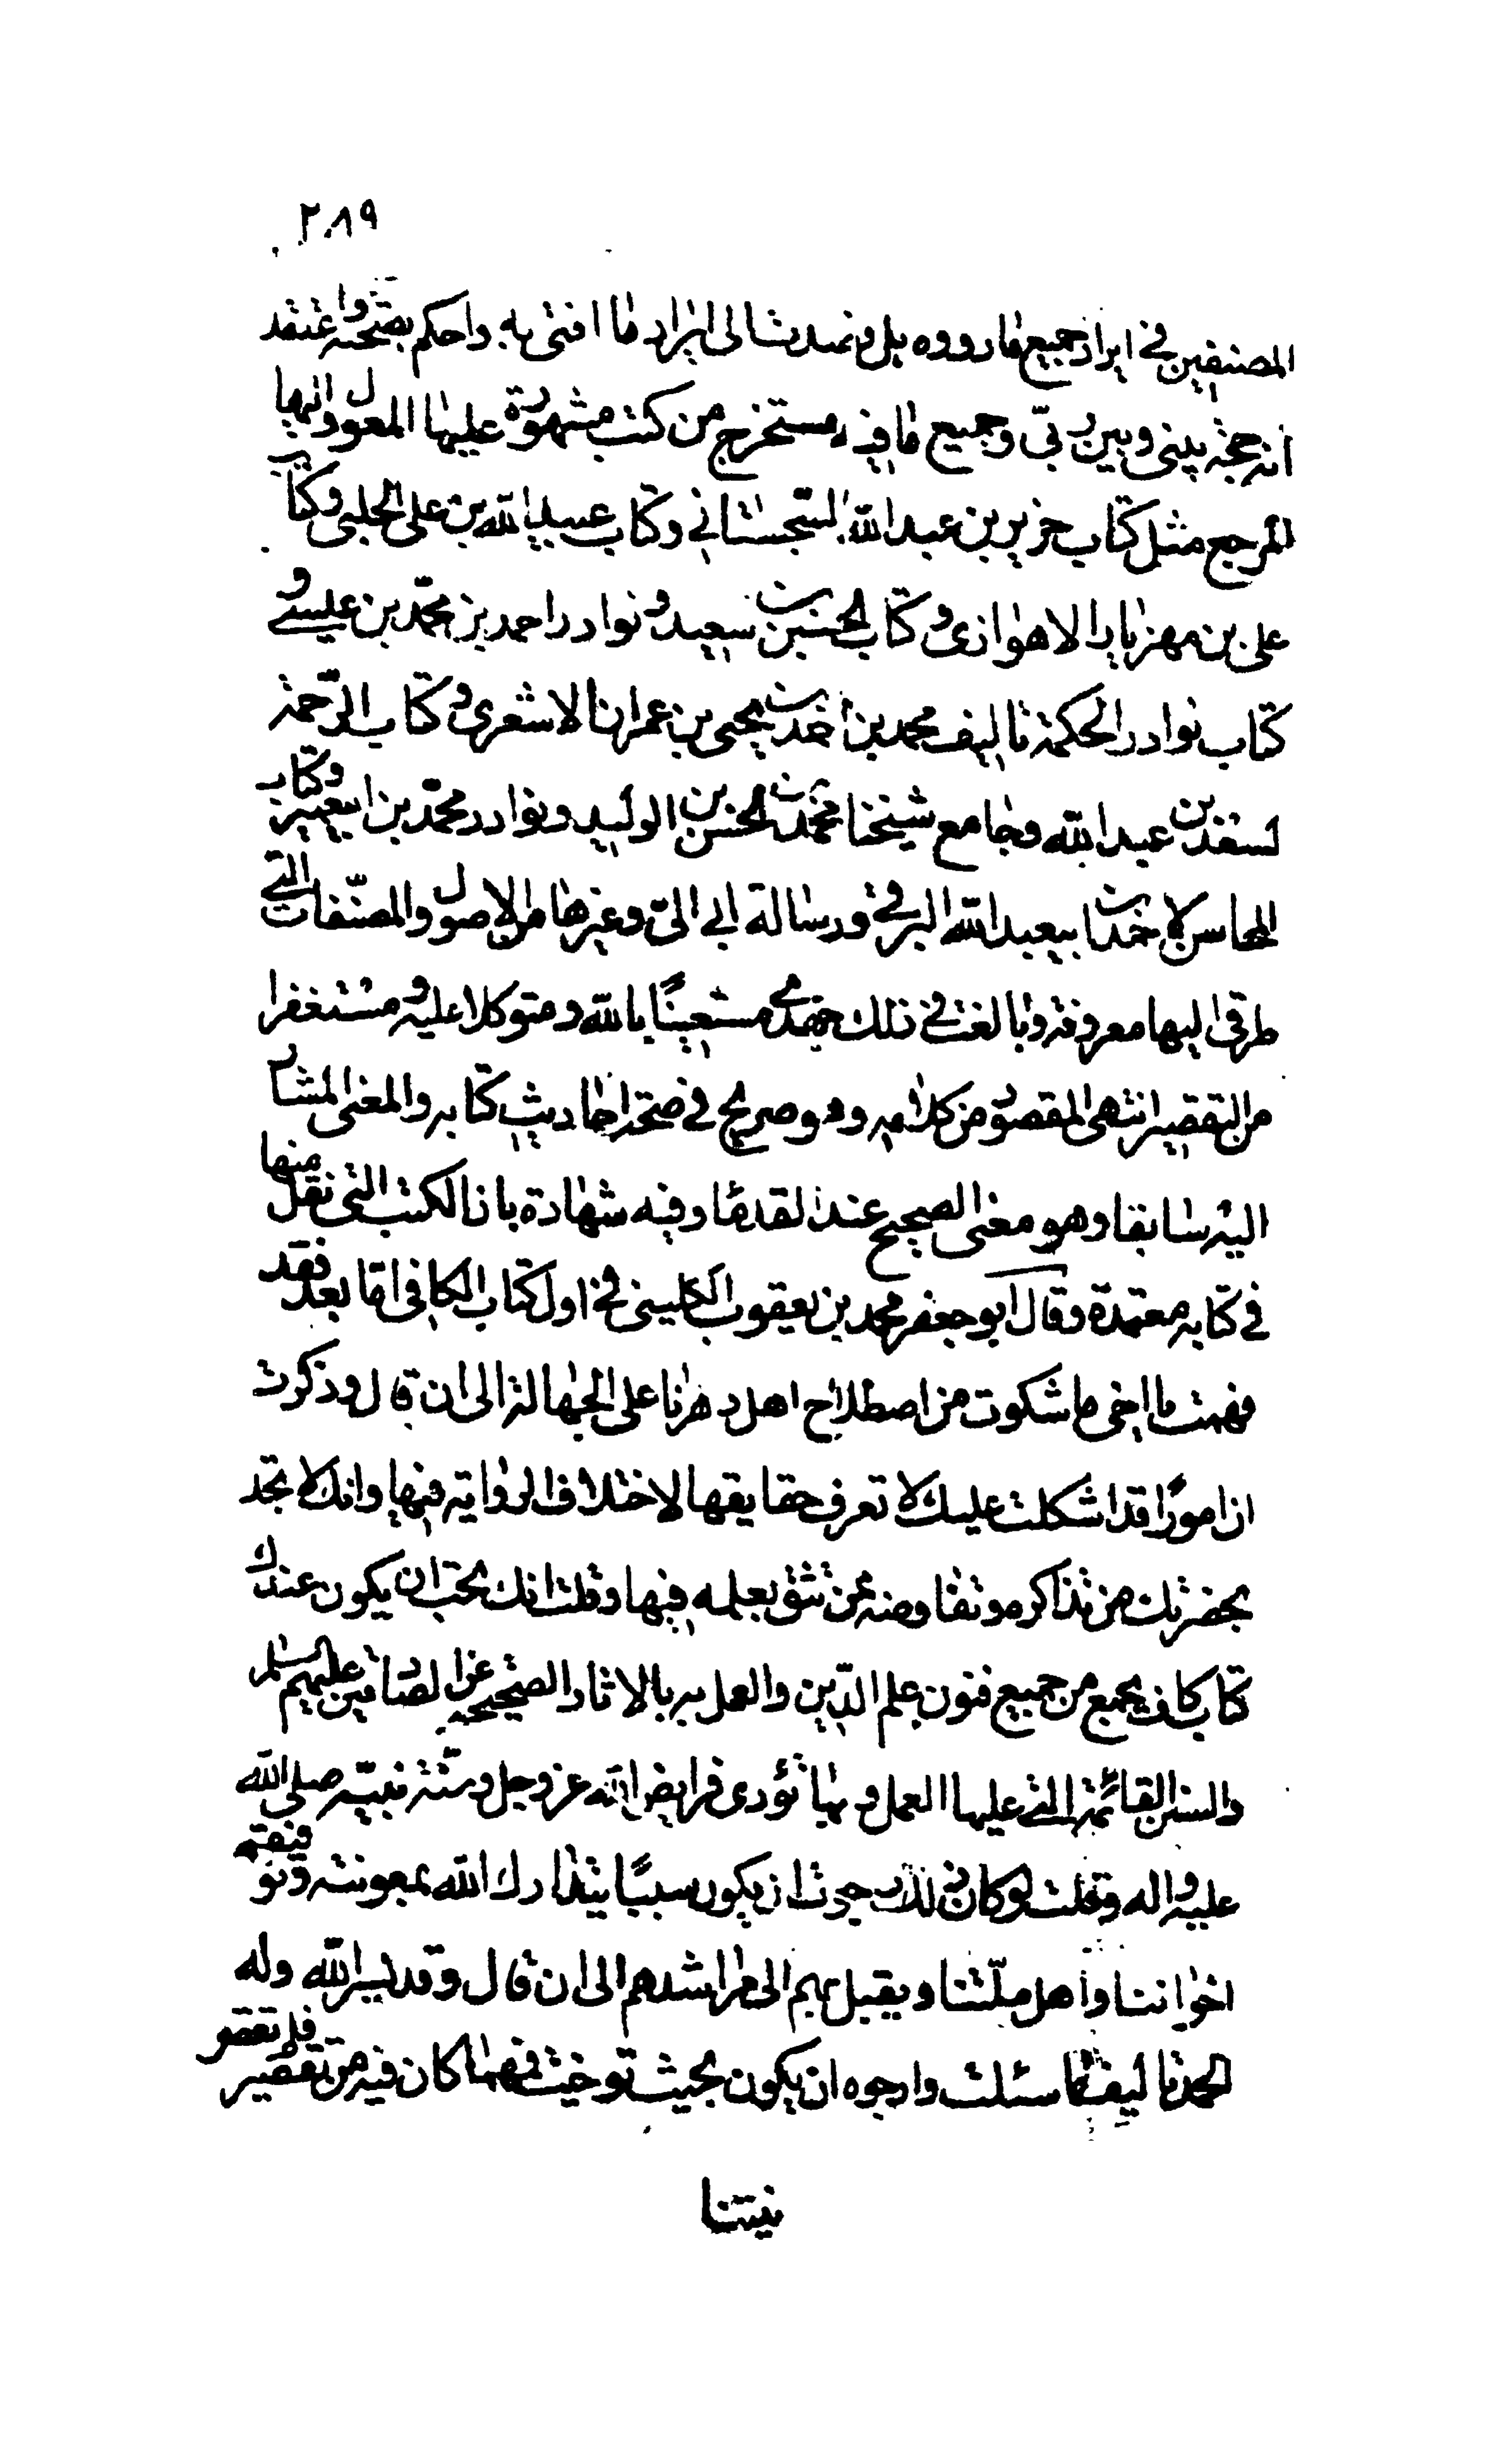 ٢٨٩
المصنفين في ايراد جميع ما رووه بل قصدت الى ايراد ما افتى به واحكم بصحته واعتقد
انه حجة بيني وبين ربي وجميع ما فيه مستخرج من كتب مشهورة عليها المعول واليها
المرجع مثل كتاب حريز بن عبدالله السجستاني وكتاب عبيدالله بن علي الحلبي وكتاب
علي بن مهزيار الاهوازي وكتاب الحسين بن سعيد و نوادر احمد بن محمد بن عيسى و
كتاب نوادر الحكمة تاليف محمد بن احمد بن يحيى بن عمران الاشعري و كتاب الرحمة
لسعد بن عبدالله وجامع شيخنا محمد بن الحسن بن الوليد ونوادر محمد بن ابيعمير وكتاب
المحاسن لاحمد بن ابيعبدالله البرقي ورسالة ابي الي وغيرها من الاصول والمصنّفات التي
طرقي اليها معروفة وبالغت في ذلك جهدي مستعينًا بالله ومتوكلا عليه و مستغفرا
من التقصير انتهى المقصود من كلامه وهو صريح في صحة احاديث كتابه والمعنى المشار
اليه سابقا وهو معنى الصحيح عند القدما وفيه شهادة بان الكتب التي نقل منها
في كتابه معتمدة وقال ابو جعفر محمد بن يعقوب الكليني في اول كتاب الكافي امّا بعد فقد
فهمت يا اخي ما شكوت من اصطلاح اهل دهرنا على الجهالة الى ان قال وذكرت
ان امورًا قد اشكلت عليك لا تعرف حقايقها لاختلاف الرواية فيها وانك لا تجد
بحضرتك من تذاكره وتفاوضه ممن تثق بعلمه فيها وقلت انك تحب ان يكون عندك
كتاب كاف يجمع من جميع فنون علم الدّين والعمل به بالاثار الصحيحة عن الصادقين عليهم السلم
والسنن القائمة التي عليها العمل و بها تؤدى فرايض الله عز وجل وسنّة نبيّه صلى الله
عليه واله وقلت لو كان ذلك رجوت ان يكون سببًا يتدارك الله بمعونته وتوفيقه
اخواننا واهل ملّتنا ويقبل بهم الى مراشدهم الى ان قال وقد يسر الله وله
الحمد تاليف ما سئلت وارجو ان يكون بحيث توخيت فمهما كان فيه من تقصير فلم تقصر
نيتنا